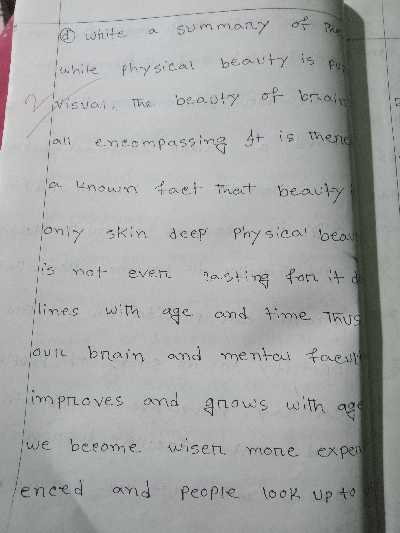 (d) White a summary of the
while physical beauty is pu
visual. The beauty of brain
all encompassing It is there
a known fact that beauty
only skin deep physical beau
is not even lasting for it de
lines with age and time Thus
our brain and mental facul
improves and grows with age
we become wiser more exper
enced and people look up to